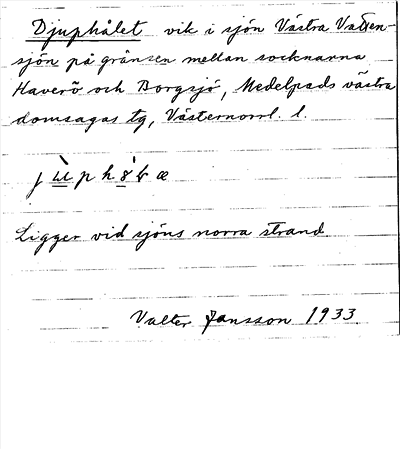 Djuphålet vik i sjön Västra Vatten-
sjön på gränsen mellan socknarna
Haverö och Borgsjö, Medelpads västra
domsagas tg, Västernorrl. l.
Ligger vid sjöns norra strand
Valter Jansson 1933